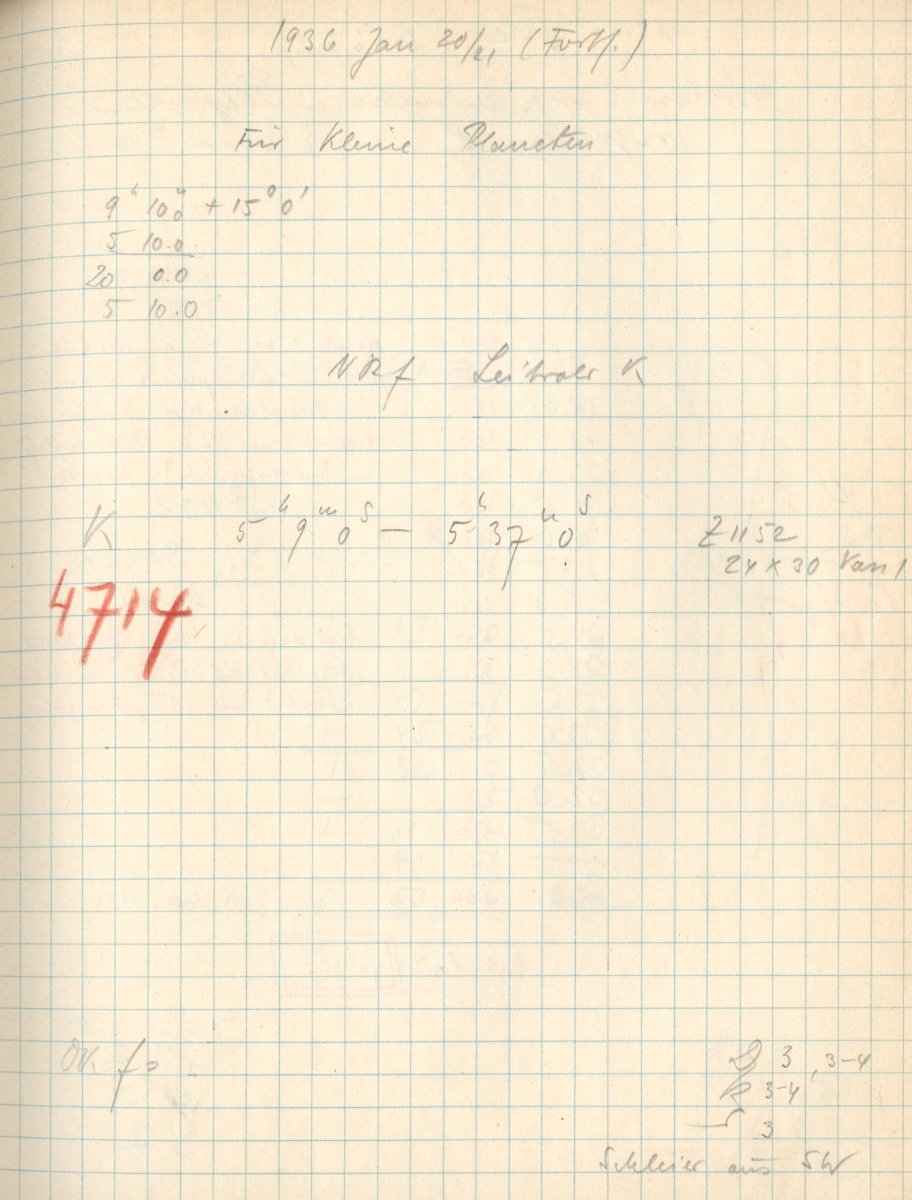 1936 Jan 20/21 (Forts.)
Für Kleine Planeten
9h 10m0 + 15° 0'
5 10.0
20 0.0
5 10.0
NRf Leitrohr K
K 5h 9m 0s — 5h 37m 0s Z 1152
24 x 30
4714
OK f =
3, 3-4
3-4
3
Schleier aus SW